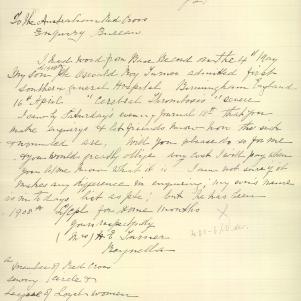 To The Australian Red Cross
Enquiry Bureau
I had word from Base Record on the 4th May
My son, Pte Oswald Roy Turner admitted first
Southern General Hospital Birmingham England
16th April "Cerebral Thrombosis" "Severe"
I saw by Saturdays evening Journal 11th that you
make enquiry & let friends know how the sick
& wounded are. Will you please do so for me
& you would greatly oblige any cost I will pay when
you let me know what it is I am not sure if it
makes any difference in enquiring, my son's name
is on to days list as pte; but he has been
for some months
Yours respectfully
(Mrs) H E Turner
Reynella
a
member of Red Cross
sewing circle &
League of Loyal Women